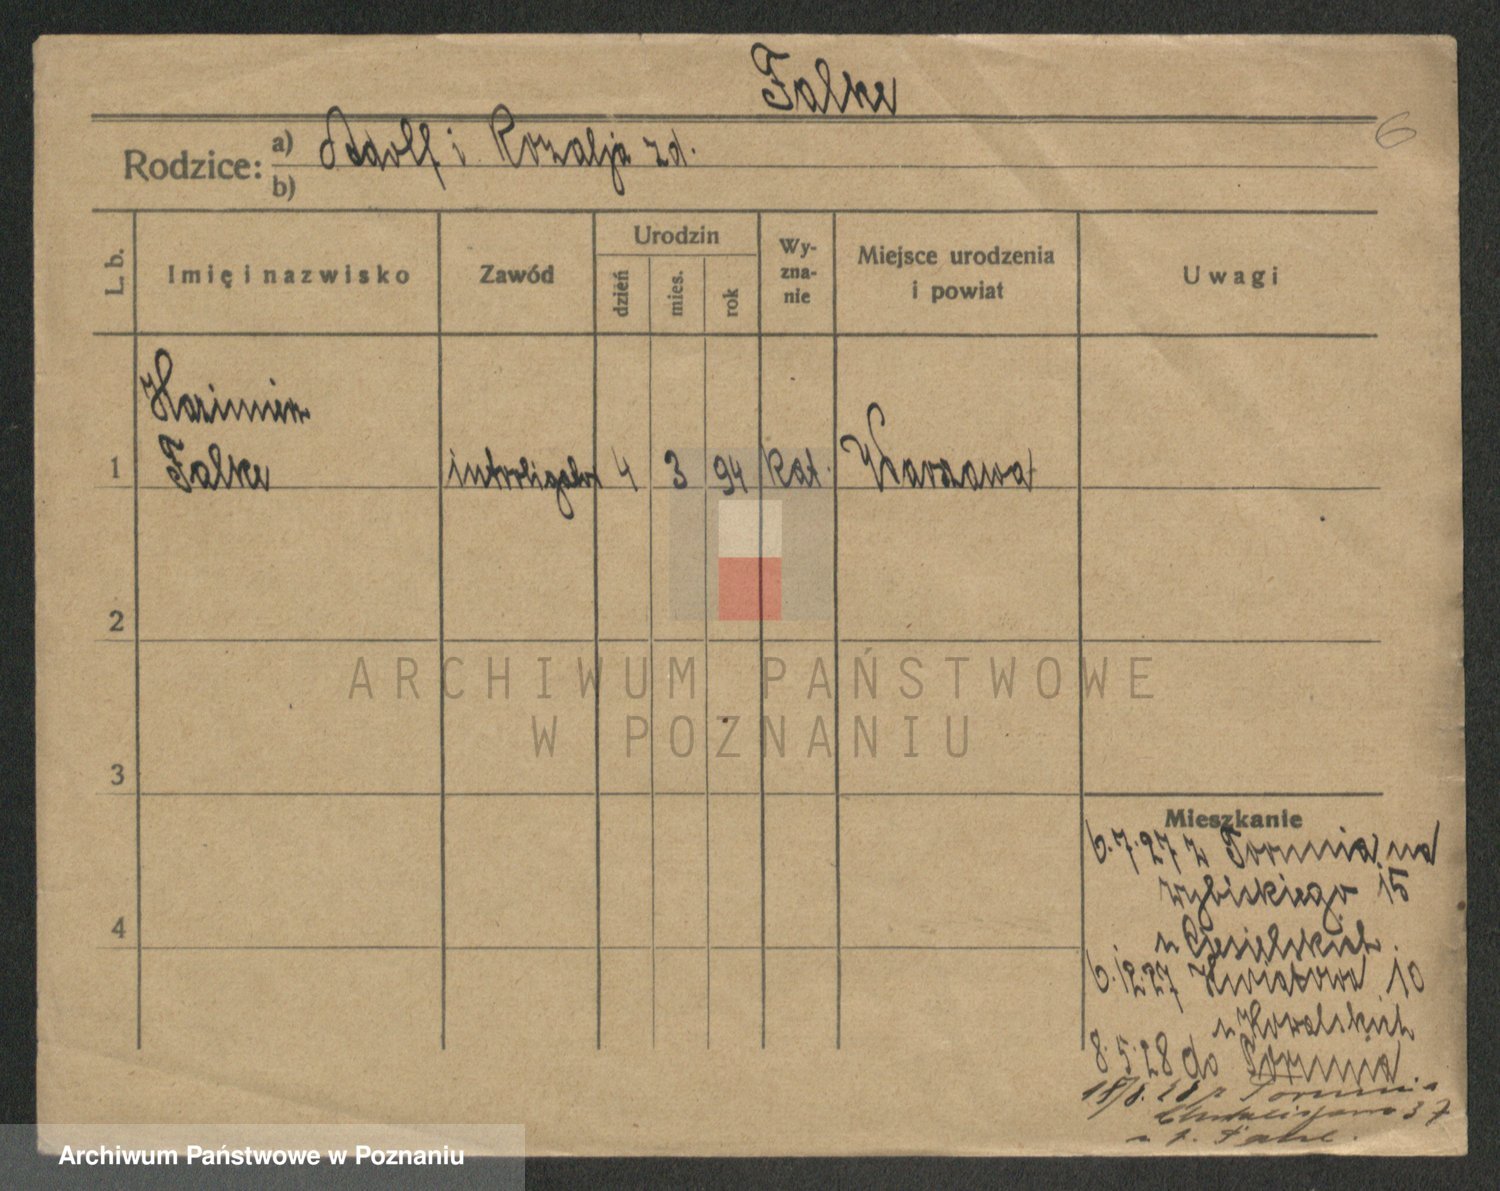 Falke
6
Rodzice: a) Adolf i Rozalja zd.
b)
L. b.
Imię i nazwisko
Zawód
Urodzin
dzień
mies.
rok
Wy-
zna-
nie
Miejsce urodzenia
i powiat
Uwagi
Kazimierz
1 Falke introligator 4 3 94 kat. Warszawa
2
ARCHIWUM PAŃSTWOWE
W POZNANIU
3
Mieszkanie
6.7.27 z Torunia na
Wybickiego 15
u Ciesielskich
4
6.12.27 Kwiatowa 10
u Kowalskich
8.5.28 do Torunia
18/8.28 z Torunia
37
u
Archiwum Państwowe w Poznaniu